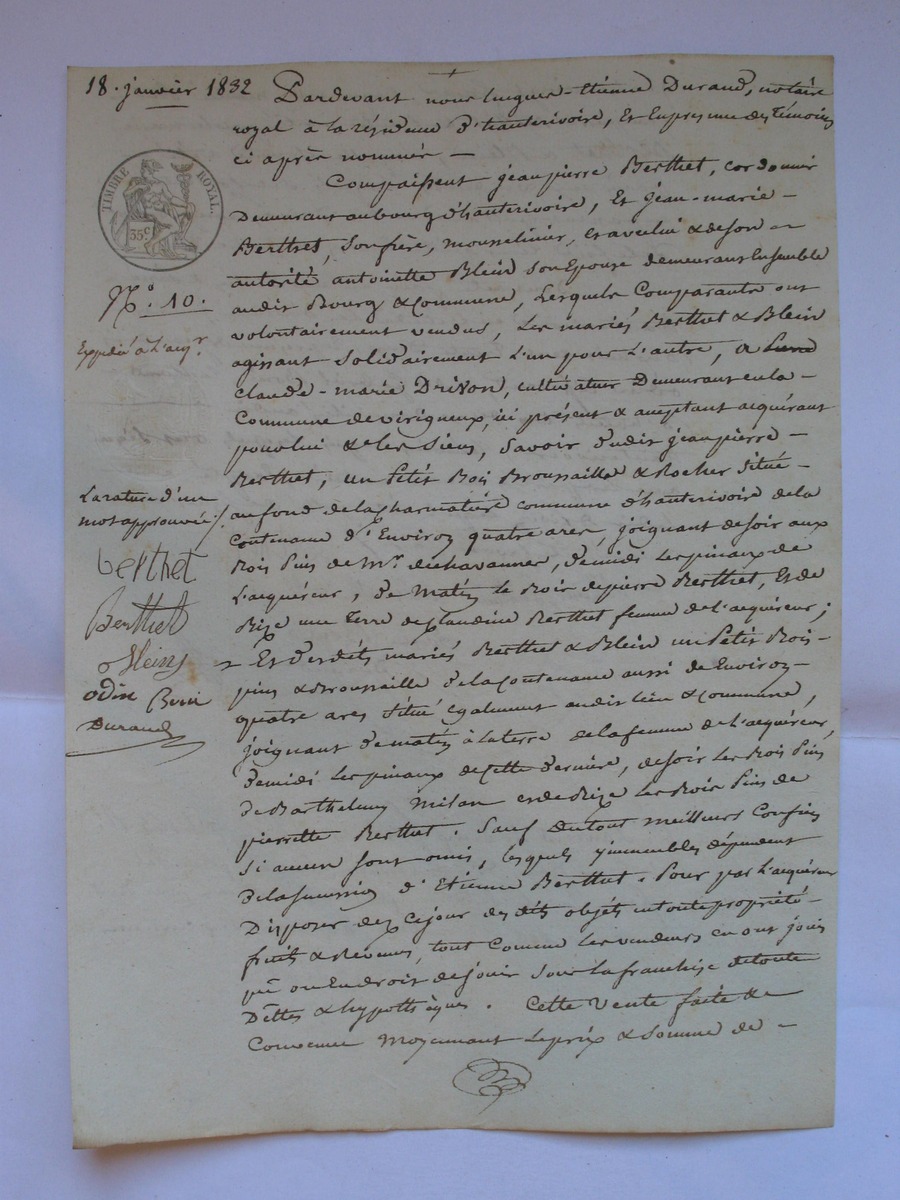 18. janvier 1832
Pardevant nous hugues-Etienne Durand, notaire
royal à la résidence d'hauterivoire, Et En présence des témoins
ci après nommés —
Comparaissent jean pierre Berthet, cordonnier
Demeurant au bourg d'hauterivoire, Et Jean-marie —
Berthet, son frère, mousselinier, et avec lui & de son —
autorité antoinette Blein son Epouse demeurans Ensemble
audit Bourg & Commune, Lesquels Comparants ont
volontairement vendus, Les mariés Berthet & Blein
agissant solidairement L'un pour L'autre, a
Claude-marie Drivon, cultivateur Demeurant en la —
Commune de virigneux, ici présent & acceptant acquérant
pour lui & les siens, Savoir Ledit jean pierre —
Berthet, un Petit Bois Broussaille & Rocher situé —
au fond de la commune d'hauterivoire de la
Contenance d'Environ quatre ares, joignant de soir aux
Bois Pins de Mr. dechavannes, de midi les pinaux de
L'acquéreur, de Matin le Bois de pierre Berthet, Et de
Bize une Terre de Claudine Berthet femme de L'acquéreur ;
Et Lesdits mariés Berthet & Blein un Petit Bois —
pins & Broussaille de la Contenance aussi de Environ —
quatre ares situé Egalement audit lieu & Commune,
joignant de matin à la terre de la femme de L'acquéreur,
de midi les pinaux de Cette dernière, de soir les Bois Pins
de Barthelemy Milan et de Bize les Bois Pins de
pierrette Berthet. Sauf du tout meilleurs Confins
si aucun sont omis, lesquels immeubles dépendent
de la succession d'Etienne Berthet. Pour par L'acquéreur
Disposer dez ce jour desdits objets en toute propriété
fruits & Revenus, tout Comme Les vendeurs en ont joui
pu ou En droit de jouir sous la franchise de toute
Dettes & hypothèques. Cette vente faite &
Convenue Moyennant Le prix & Somme de —
TIMBRE ROYAL.
35c
No. 10.
Expédié à L'acqr.
La rature d'un
mot approuvée
berthet
Berthet
Blein
odin
Durand